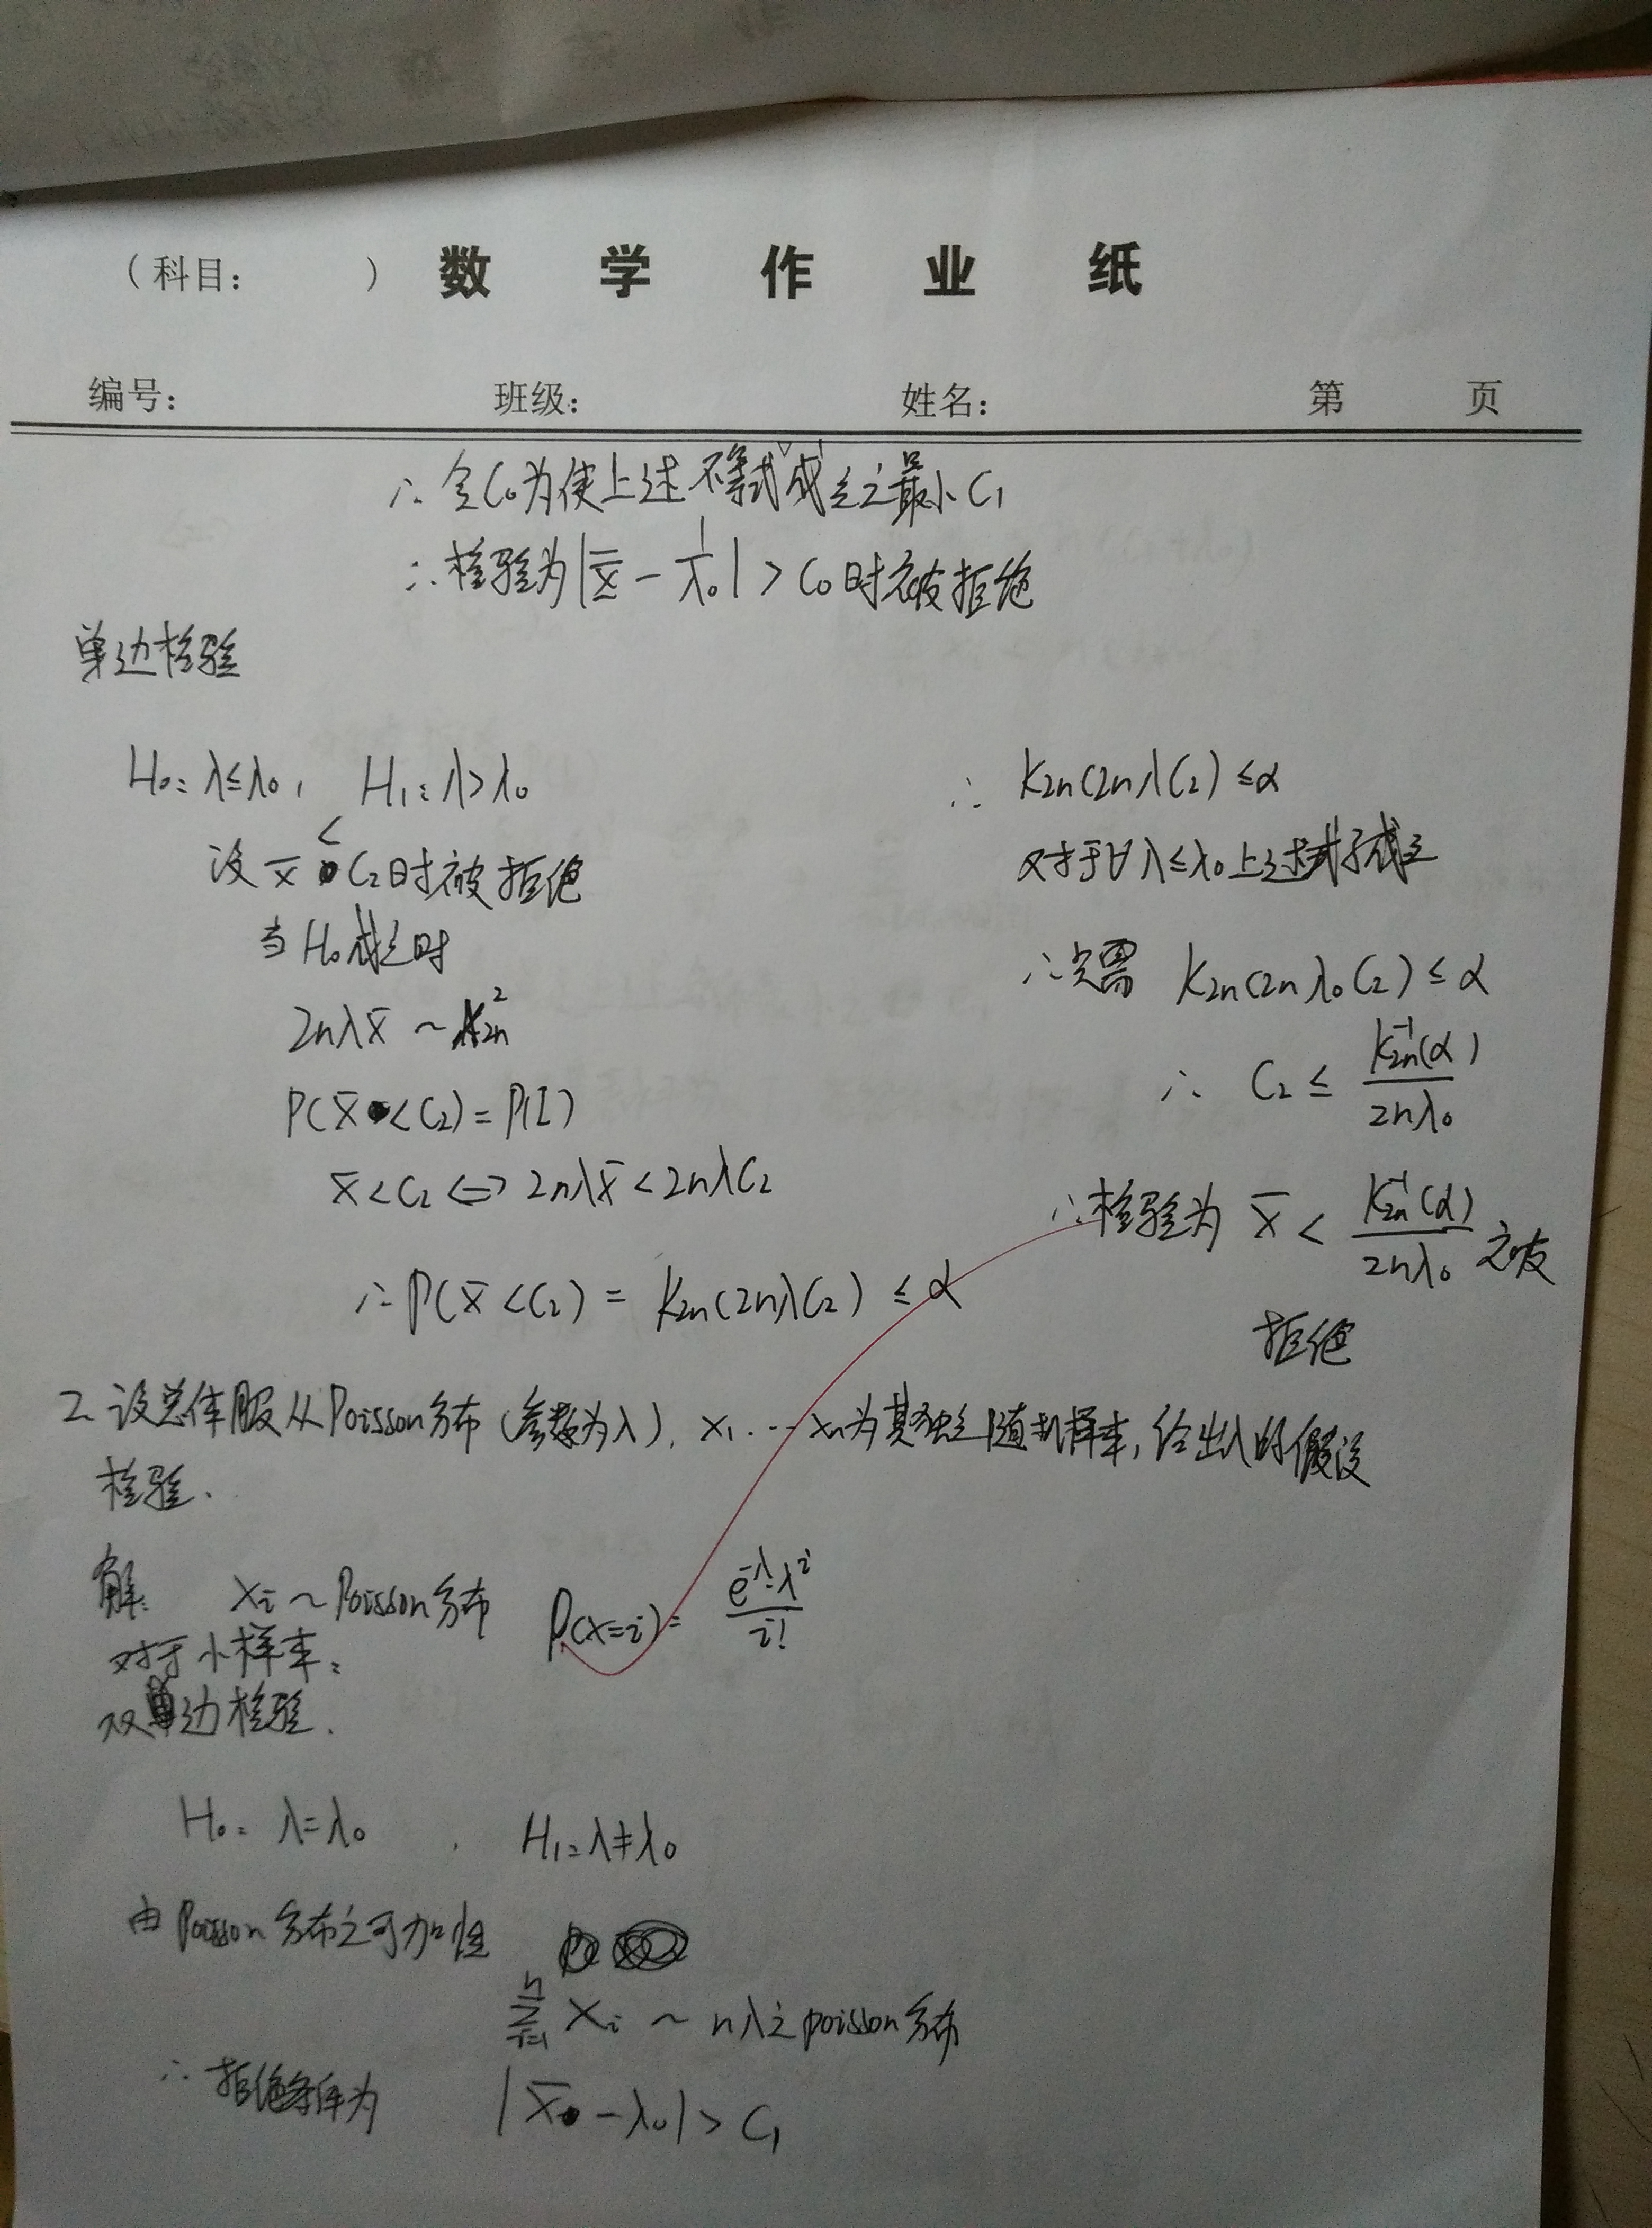 （科目： ） 数 学 作 业 纸
编号： 班级： 姓名： 第 页
∴ 令C₀为使上述不等式成立之最小C₁
∴ 检验为|x̄ - 1/λ₀| > C₀时被拒绝
单边检验
H₀: λ≤λ₀, H₁: λ>λ₀
设 x̄ < C₂时被拒绝
当H₀成立时
2nλx̄ ~ K²₂ₙ
P(x̄ < C₂) = P(I)
x̄ < C₂ ⇔ 2nλx̄ < 2nλC₂
∴ P(x̄ < C₂) = K₂ₙ(2nλC₂) ≤ α
∴ K₂ₙ(2nλC₂) ≤ α
对于∀λ≤λ₀上述式子成立
∴ 只需 K₂ₙ(2nλ₀C₂) ≤ α
∴ C₂ ≤ K₂ₙ⁻¹(α) / 2nλ₀
∴ 检验为 x̄ < K₂ₙ⁻¹(α) / 2nλ₀ 之被
拒绝
2. 设总体服从Poisson分布（参数为λ）, x₁...xₙ为其独立随机样本, 给出λ的假设
检验.
解: xᵢ ~ Poisson分布 P(x=i) = e^-λ·λ^i / i!
对于小样本:
双边检验.
H₀: λ=λ₀ , H₁: λ≠λ₀
由Poisson分布之可加性
∑ⁿᵢ₌₁ xᵢ ~ nλ之poisson分布
∴ 拒绝条件为 |x̄ - λ₀| > C₁